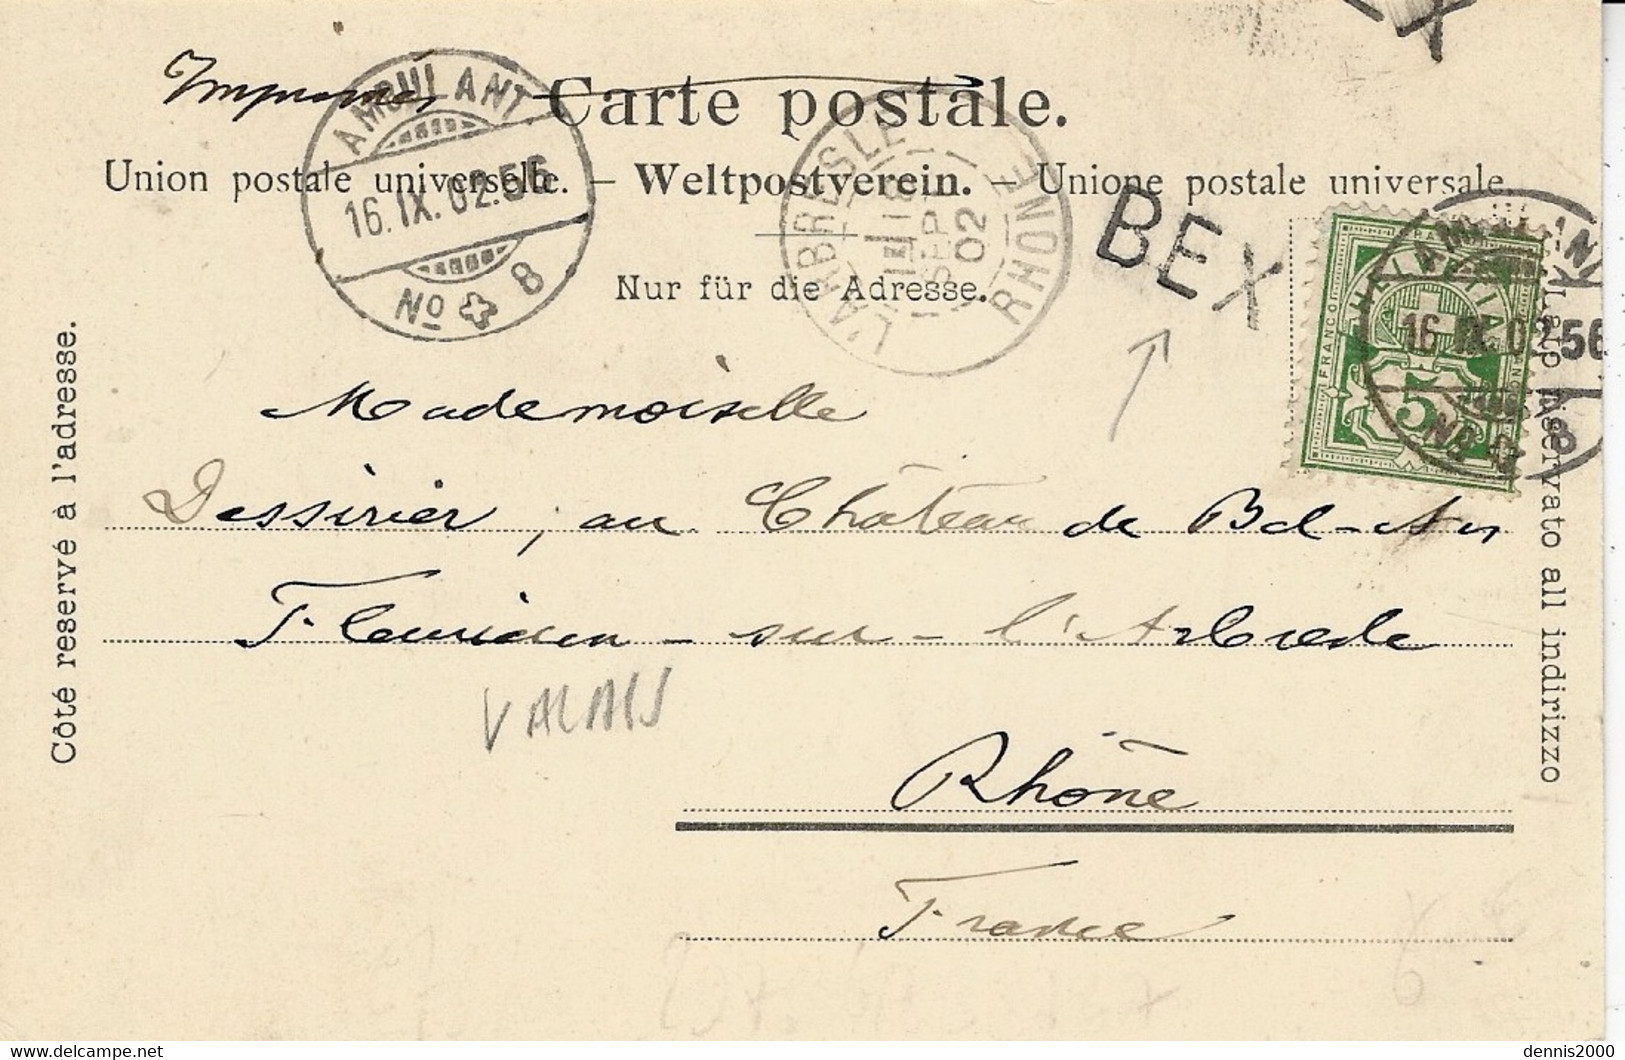 Imprimés
Carte postale.
Union postale universelle. – Weltpostverein. – Unione postale universale.
Nur für die Adresse.
AMBULANT.
16.IX.02.56
No 8
L'ARBRESLE
18
SEPT
02
RHONE
BEX
EX
HELVETIA
FRANCO
5
AMBULANT
16 IX 02 56
No 8
Côté reservé à l'adresse.
Lato riservato all indirizzo
Mademoiselle
Dessirier, au Château de Bel-Air
Fleurieux-sur-l'Arbresle
VALAIS
Rhône
France
dennis2000